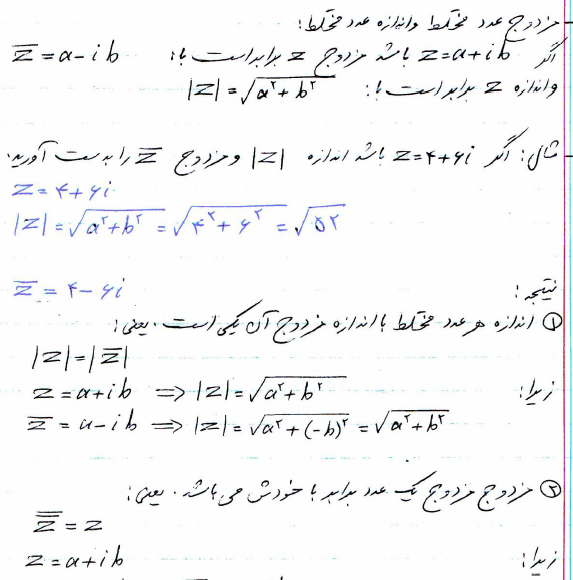 - مزدوج عدد مختلط و اندازه عدد مختلط:
اگر z = a + ib باشد مزدوج z برابر است با: z̅ = a - ib
و اندازه z برابر است با: |z| = √(a² + b²)
- مثال: اگر z = ۴ + ۶i باشد اندازه |z| و مزدوج z̅ را بدست آورید.
z = ۴ + ۶i
|z| = √(a² + b²) = √(۴² + ۶²) = √۵۲
z̅ = ۴ - ۶i
نتیجه:
① اندازه هر عدد مختلط با اندازه مزدوج آن یکی است. یعنی:
|z| = |z̅|
زیرا: z = a + ib ⇒ |z| = √(a² + b²)
z̅ = a - ib ⇒ |z| = √(a² + (-b)²) = √(a² + b²)
② مزدوج مزدوج یک عدد برابر با خودش می باشد. یعنی:
z̿ = z
زیرا: z = a + ib